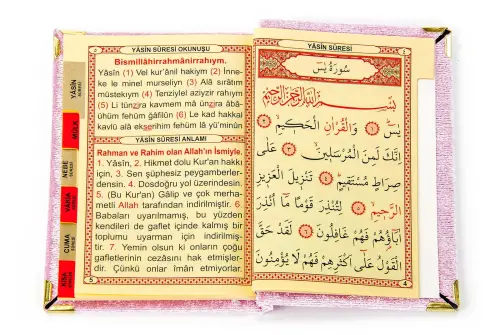 YÂSİN SÛRESİ OKUNUŞU
Bismillâhirrahmânirrahıym.
Yâsîn (1) Vel kur'ânil hakiym (2) İnne-
ke le minel murseliyn (3) Alâ sırâtım
müstekıym (4) Tenziylel aziyzir rahıym
(5) Li tünzira kavmem mâ ünzira âbâ-
ühüm fehüm ğâfilûn (6) Le kad hakkal
kavlü alâ ekserihim fehüm lâ yü'minûn
YÂSİN SÛRESİ ANLAMI
Rahman ve Rahim olan Allah'ın İsmiyle.
1. Yâsîn, 2. Hikmet dolu Kur'an hakkı
için, 3. Sen şüphesiz peygamberler-
densin. 4. Dosdoğru yol üzerindesin.
5. (Bu Kur'an) Gâlip ve çok merha-
metli Allah tarafından indirilmiştir. 6.
Babaları uyarılmamış, bu yüzden
kendileri de gaflet içinde kalmış bir
toplumu uyarman için indirilmiş-
tir. 7. Yemin olsun ki onların çoğu
gafletlerinin cezâsını hak etmişler-
dir. Çünkü onlar îman etmiyorlar.
5
YÂSİN
MÜLK
NEBE
VAKIA
CUMA
KISA
YÂSİN SÛRESİ
سُورَةُ يٰسٓ
بِسْمِ اللّٰهِ الرَّحْمٰنِ الرَّحِيمِ
يٰسٓ ۝١ وَالْقُرْاٰنِ الْحَكِيمِ ۝٢
اِنَّكَ لَمِنَ الْمُرْسَلِينَ ۝٣ عَلٰى
صِرَاطٍ مُسْتَقِيمٍ ۝٤ تَنْزِيلَ الْعَزِيزِ
الرَّحِيمِ ۝٥ لِتُنْذِرَ قَوْمًا مَٓا اُنْذِرَ
اٰبَٓاؤُهُمْ فَهُمْ غَافِلُونَ ۝٦ لَقَدْ حَقَّ
الْقَوْلُ عَلٰٓى اَكْثَرِهِمْ فَهُمْ لَا يُؤْمِنُونَ
4